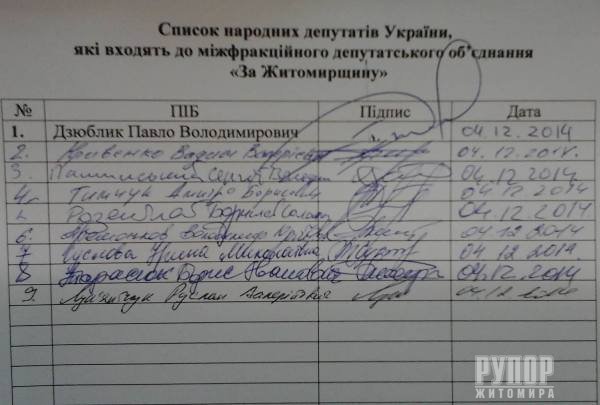 Список народних депутатів України,
які входять до міжфракційного депутатського об'єднання
«За Житомирщину»
№ ПІБ Підпис Дата
1. Дзюблик Павло Володимирович 04.12.2014
2. Кривенко Вадим 04.12.2014.
3. Пашинський Сергій 04.12.2014
4. Тимчук Дмитро Борисович 04.12.2014
Розенблат Борислав 04.12.2014
6. 04.12.2014
7 Суслова Ірина Миколаївна 04.12.2014.
8 Тарасюк Борис Іванович 04.12.2014
9. Лук'янчук Руслан Валерійович 04.12.2014
РУПОР
ЖИТОМИРА